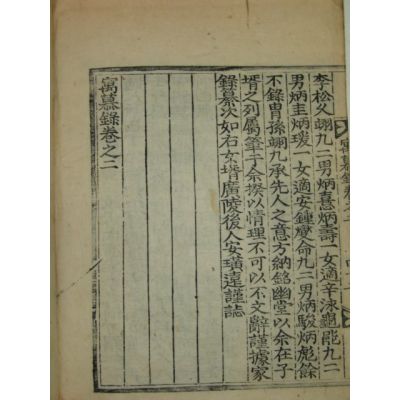 寓慕錄卷之二
李松父翊九二男炳憙炳壽一女適辛泳能九二
男炳圭炳瑗一女適安鍾燮命九二男炳駿炳彪餘
不錄胄孫翊九承先人之意方納銘幽堂以余在子
壻之列屬筆于余揆以情理不可以不文辭謹據家
錄纂次如右女壻廣陵後人安璜遠謹誌
寓慕錄卷之二